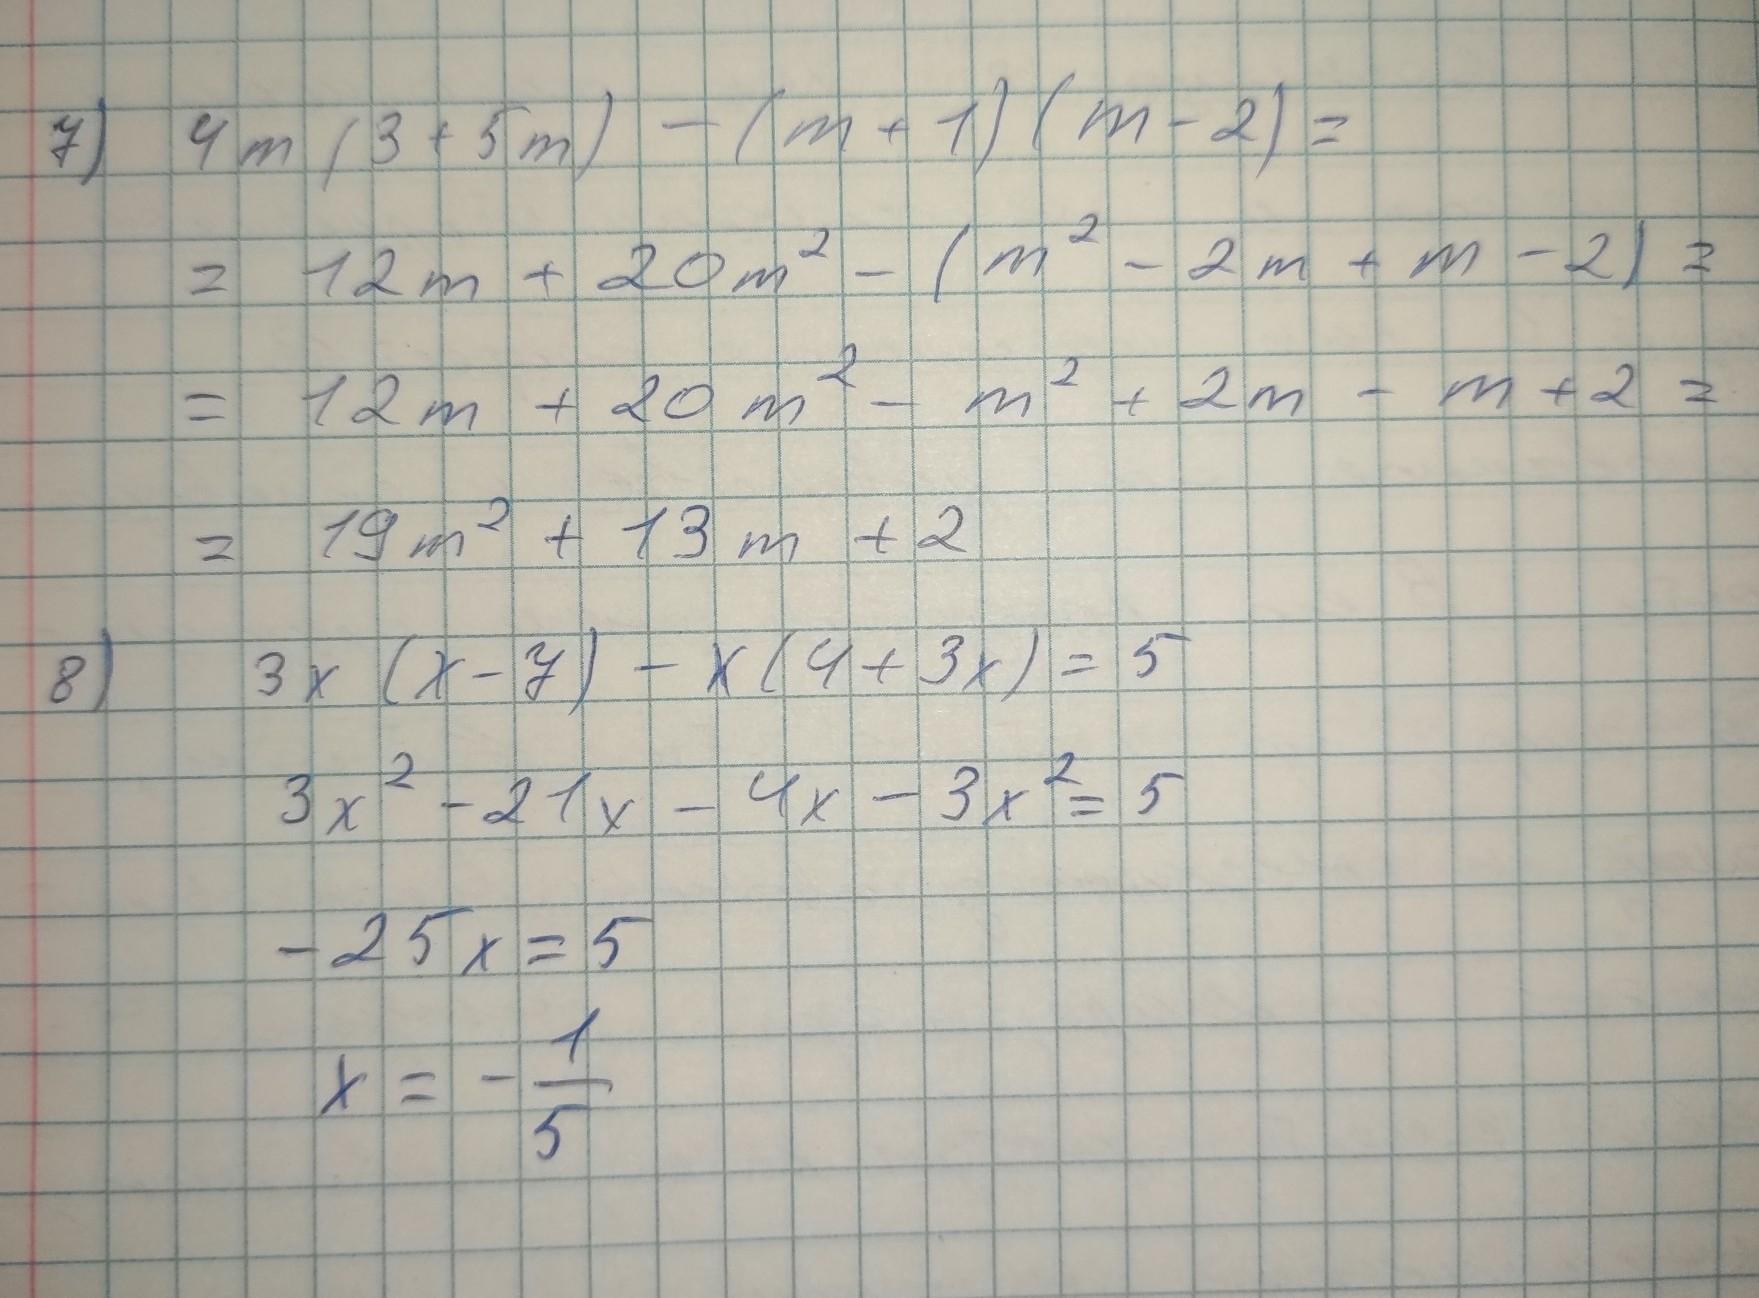 7) 4m (3 + 5m) - (m + 1) (m - 2) =
= 12m + 20m² - (m² - 2m + m - 2) =
= 12m + 20m² - m² + 2m - m + 2 =
= 19m² + 13m + 2
8) 3x (x - 7) - x (4 + 3x) = 5
3x² - 21x - 4x - 3x² = 5
- 25x = 5
x = - 1/5